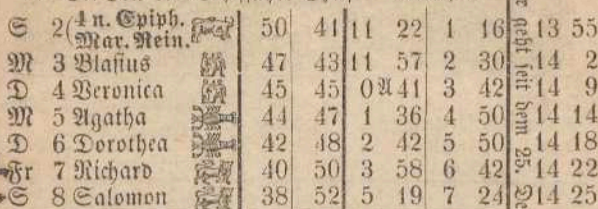 S 2(4 n. Epiph. Mar. Rein. 50 41 11 22 1 16 13 55
M 3 Blasius 47 43 11 57 2 30 14 2
D 4 Veronica 45 45 0 A 41 3 42 14 9
M 5 Agatha 44 47 1 36 4 50 14 14
D 6 Dorothea 42 48 2 42 5 50 14 18
Fr 7 Richard 40 50 3 58 6 42 14 22
S 8 Salomon 38 52 5 19 7 24 14 25
geht seit dem 25.